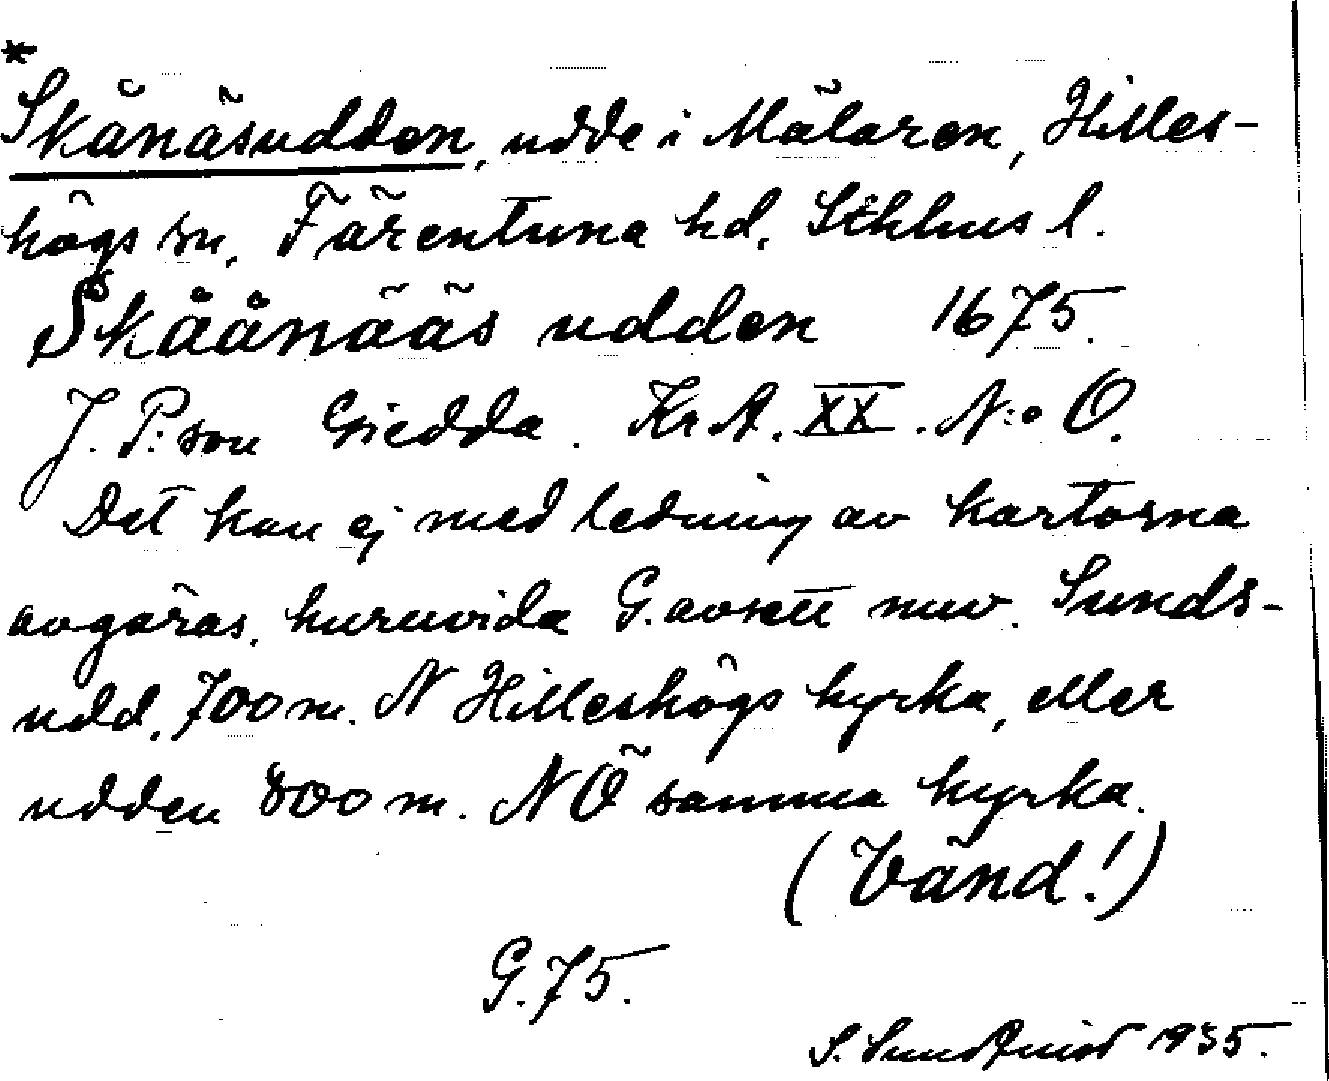 *
Skånäsudden, udde i Mälaren, Hilles-
högs sn, Färentuna hd, Sthlms l.
Skåånääs udden 1675.
J. P:son Giedda. Kr A. XX. N:o O.
Det kan ej med ledning av kartorna
avgöras, huruvida G. avsett nuv. Sunds-
udd, 700 m. N Hilleshögs kyrka, eller
udden 800 m. NÖ samma kyrka.
(Vänd!)
G. 75.
S. Sundquist 1935.